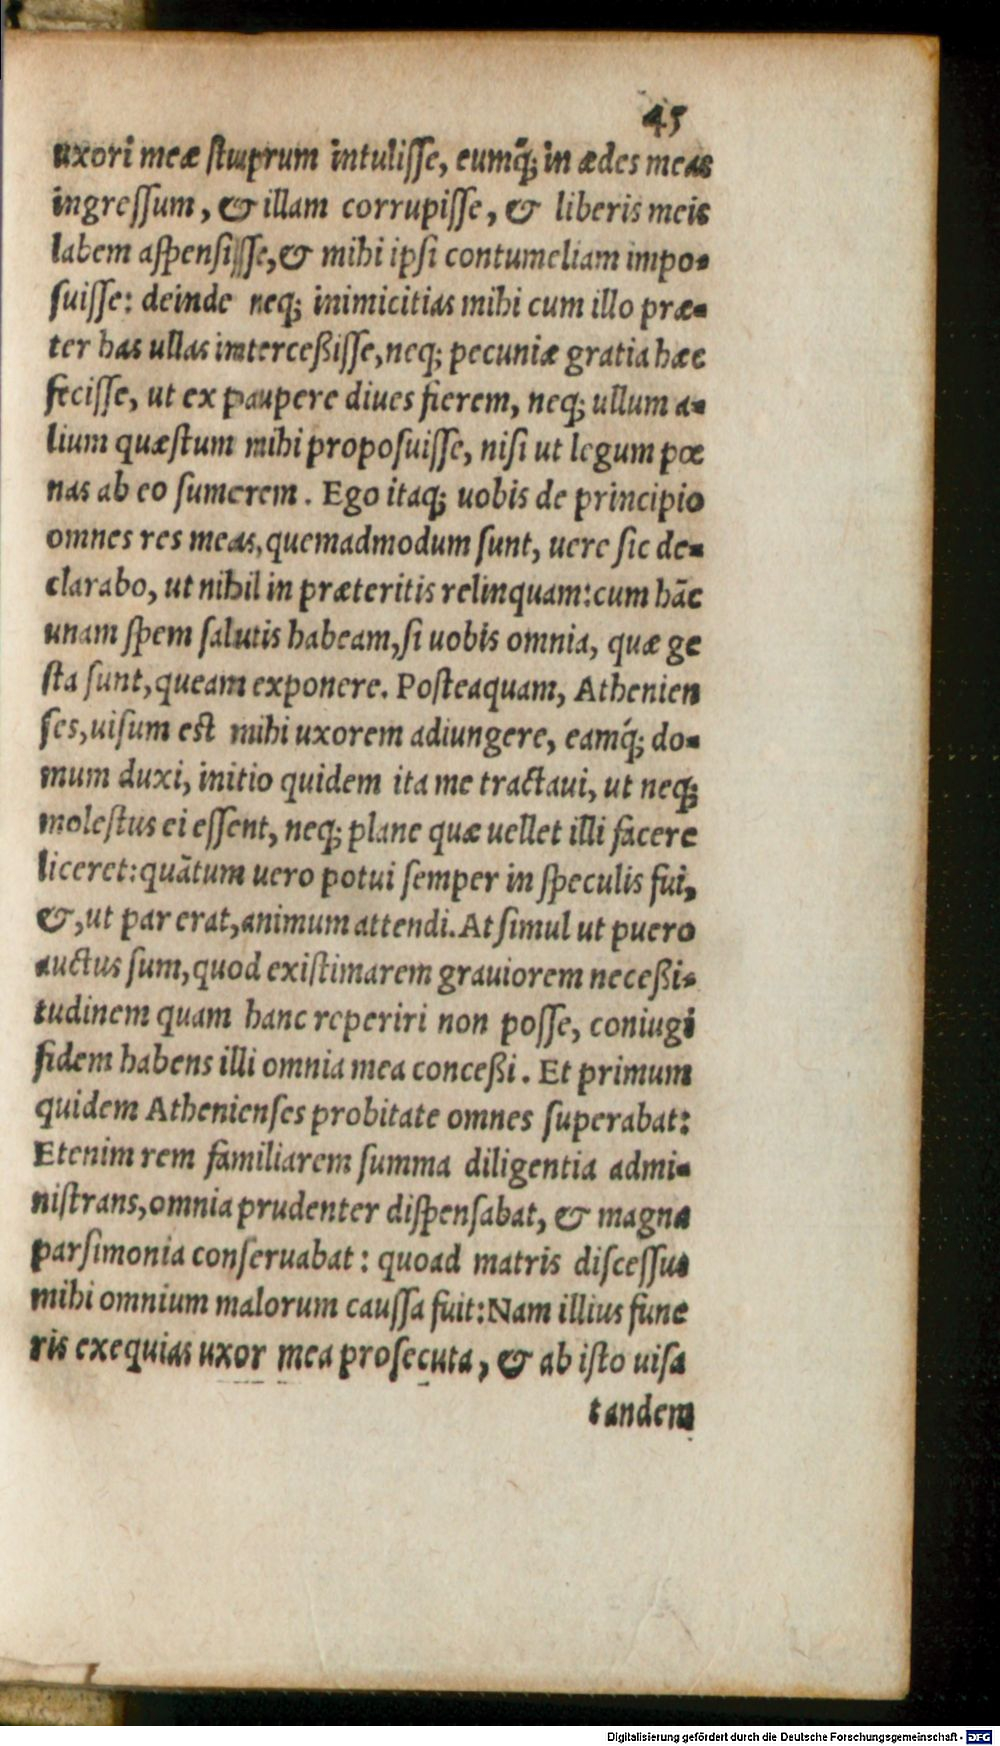 45
uxori meæ stuprum intulisse, eumq́; in ædes meas
ingressum, & illam corrupisse, & liberis meis
labem aspensisse, & mihi ipsi contumeliam impo-
suisse: deinde neq; inimicitias mihi cum illo præ-
ter has ullas interceßisse, neq; pecuniæ gratia hæc
fecisse, ut ex paupere diues fierem, neq; ullum a-
lium quæstum mihi proposuisse, nisi ut legum pœ
nas ab eo sumerem. Ego itaq; uobis de principio
omnes res meas, quemadmodum sunt, uere sic de-
clarabo, ut nihil in præteritis relinquam: cum hāc
unam spem salutis habeam, si uobis omnia, quæ ge
sta sunt, queam exponere. Posteaquam, Athenien
ses, uisum est mihi uxorem adiungere, eamq́; do-
mum duxi, initio quidem ita me tractaui, ut neq;
molestus ei essent, neq; plane quæ uellet illi facere
liceret: quātum uero potui semper in speculis fui,
&, ut par erat, animum attendi. At simul ut puero
auctus sum, quod existimarem grauiorem neceßi-
tudinem quam hanc reperiri non posse, coniugi
fidem habens illi omnia mea conceßi. Et primum
quidem Athenienses probitate omnes superabat:
Etenim rem familiarem summa diligentia admi-
nistrans, omnia prudenter dispensabat, & magna
parsimonia conseruabat: quoad matris discessus
mihi omnium malorum caussa fuit: Nam illius fune
ris exequias uxor mea prosecuta, & ab isto uisa
tandem
Digitalisierung gefördert durch die Deutsche Forschungsgemeinschaft - DFG